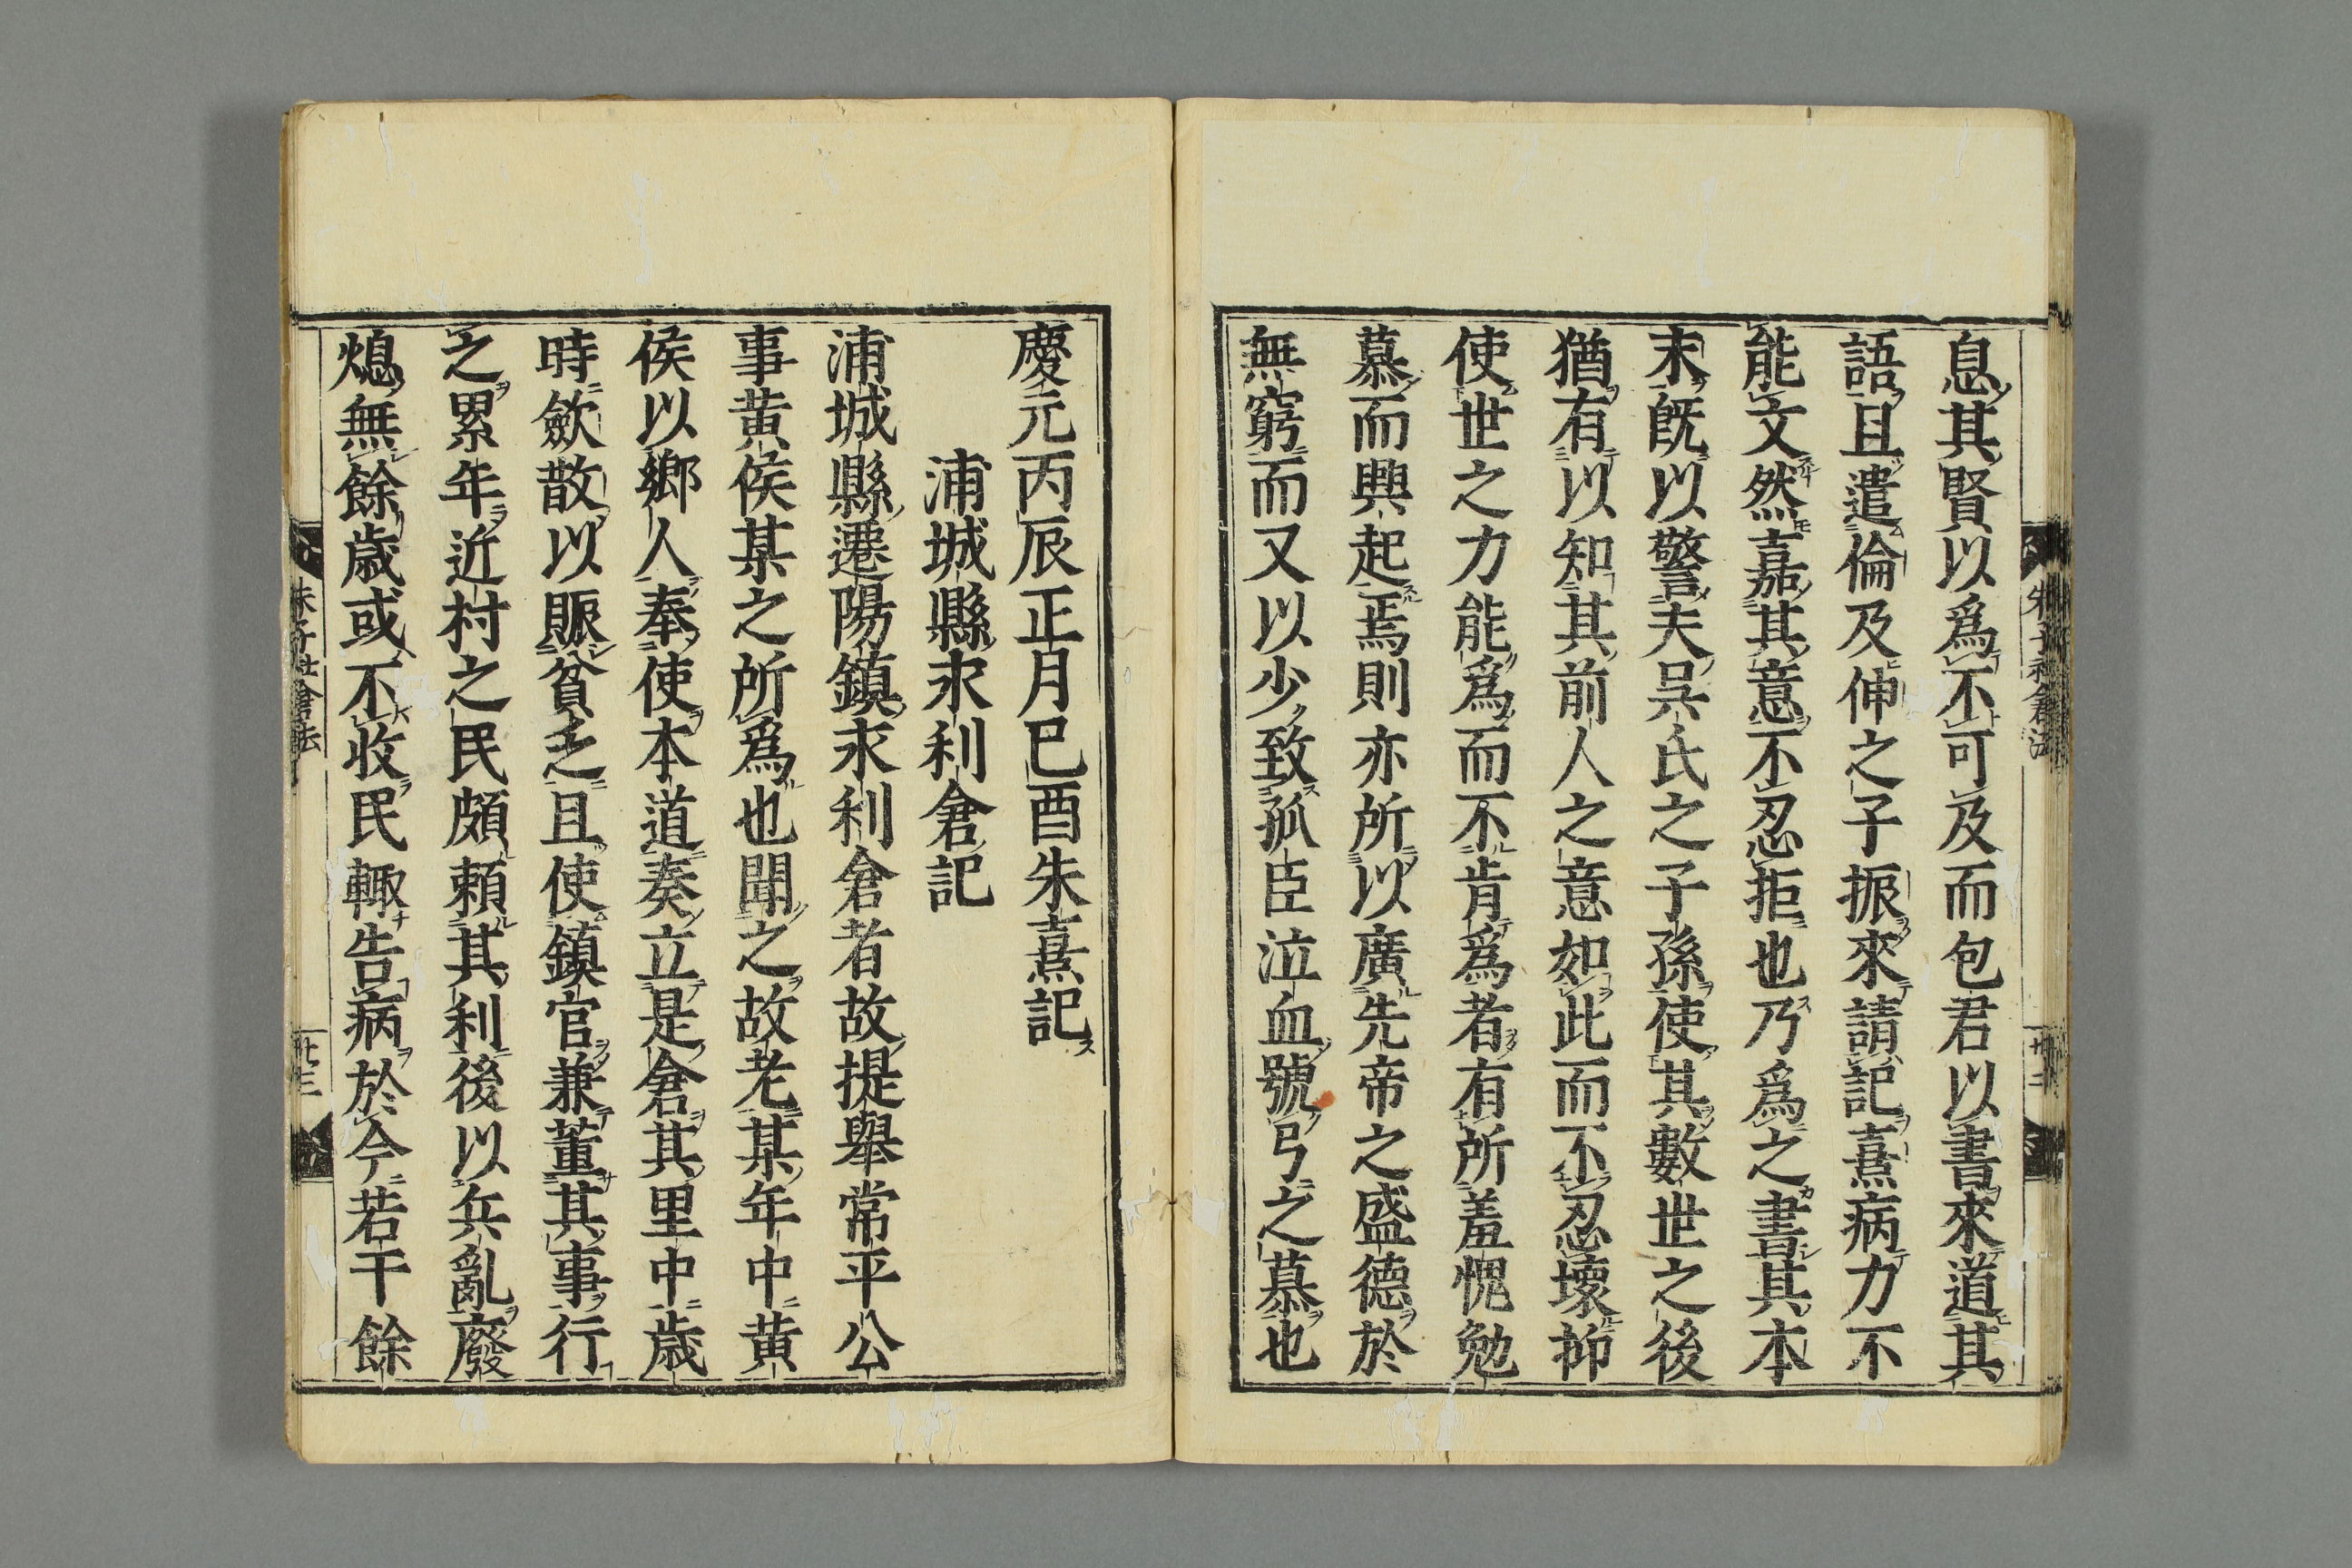 息其賢以爲不可及而包君以書來道其
語且遣倫及伸之子振來請記熹病力不
能文然嘉其意不忍拒也乃爲之書其本
末既以警夫吳氏之子孫使其數世之後
猶有以知其前人之意如此而不忍壞抑
使世之力能爲而不肯爲者有所羞愧勉
慕而興起焉則亦所以廣先帝之盛德於
無窮而又以少致孤臣泣血號弓之慕也
慶元丙辰正月巳酉朱熹記
浦城縣永利倉記
浦城縣遷陽鎮永利倉者故提舉常平公
事黄侯某之所爲也聞之故老某年中黄
侯以鄉人奉使本道奏立是倉其里中歲
時歛散以賑貧乏且使鎮官兼董其事行
之累年近村之民頗賴其利後以兵亂廢
熄無餘歲或不收民輙告病於今若干餘
朱子社倉法
廿三